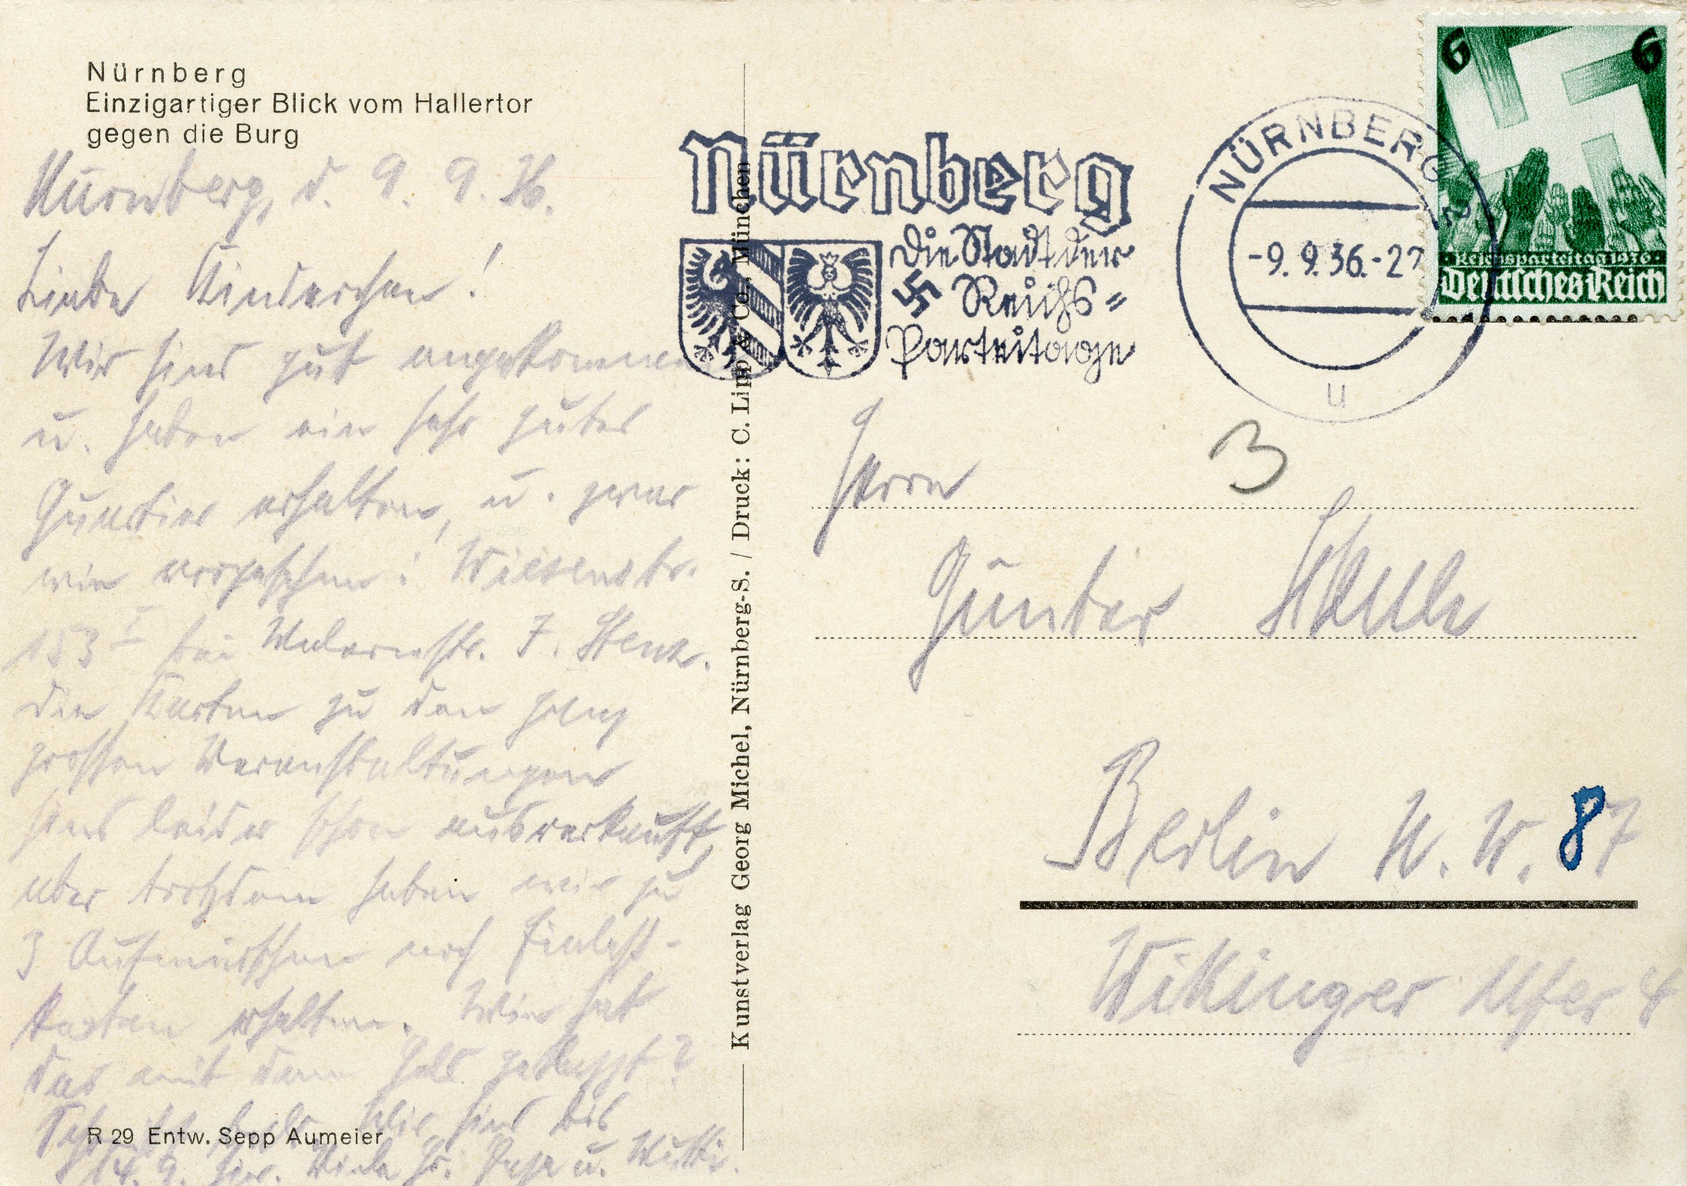 Nürnberg
Einzigartiger Blick vom Hallertor
gegen die Burg
Nürnberg, d. 9. 9. 36.
Liebe Kinderchen!
Wir sind gut angekommen
u. haben ein sehr gutes
Quartier erhalten, u. zwar
wie vorgesehen: Wiesenstr.
153 I bei F.
die Karten zu den ganz
grossen Veranstaltungen
sind leider schon ausverkauft,
aber trotzdem haben wir zu
3 Aufmärschen noch Einlaß-
karten erhalten. Wie hat
das mit dem Geld geklappt?
Wir sind bis
14. 9. hier. Viele Gr. u.
R 29 Entw. Sepp Aumeier
Kunstverlag Georg Michel, Nürnberg-S. / Druck: C. Lipp & Co., München
Nürnberg
die Stadt der
Reichs=
parteitage
NÜRNBERG 2
-9. 9. 36.-22
u
6 6
Reichsparteitag 1936
Deutsches Reich
3
Herrn
Günter
Berlin N. W. 87
Wikinger Ufer 4